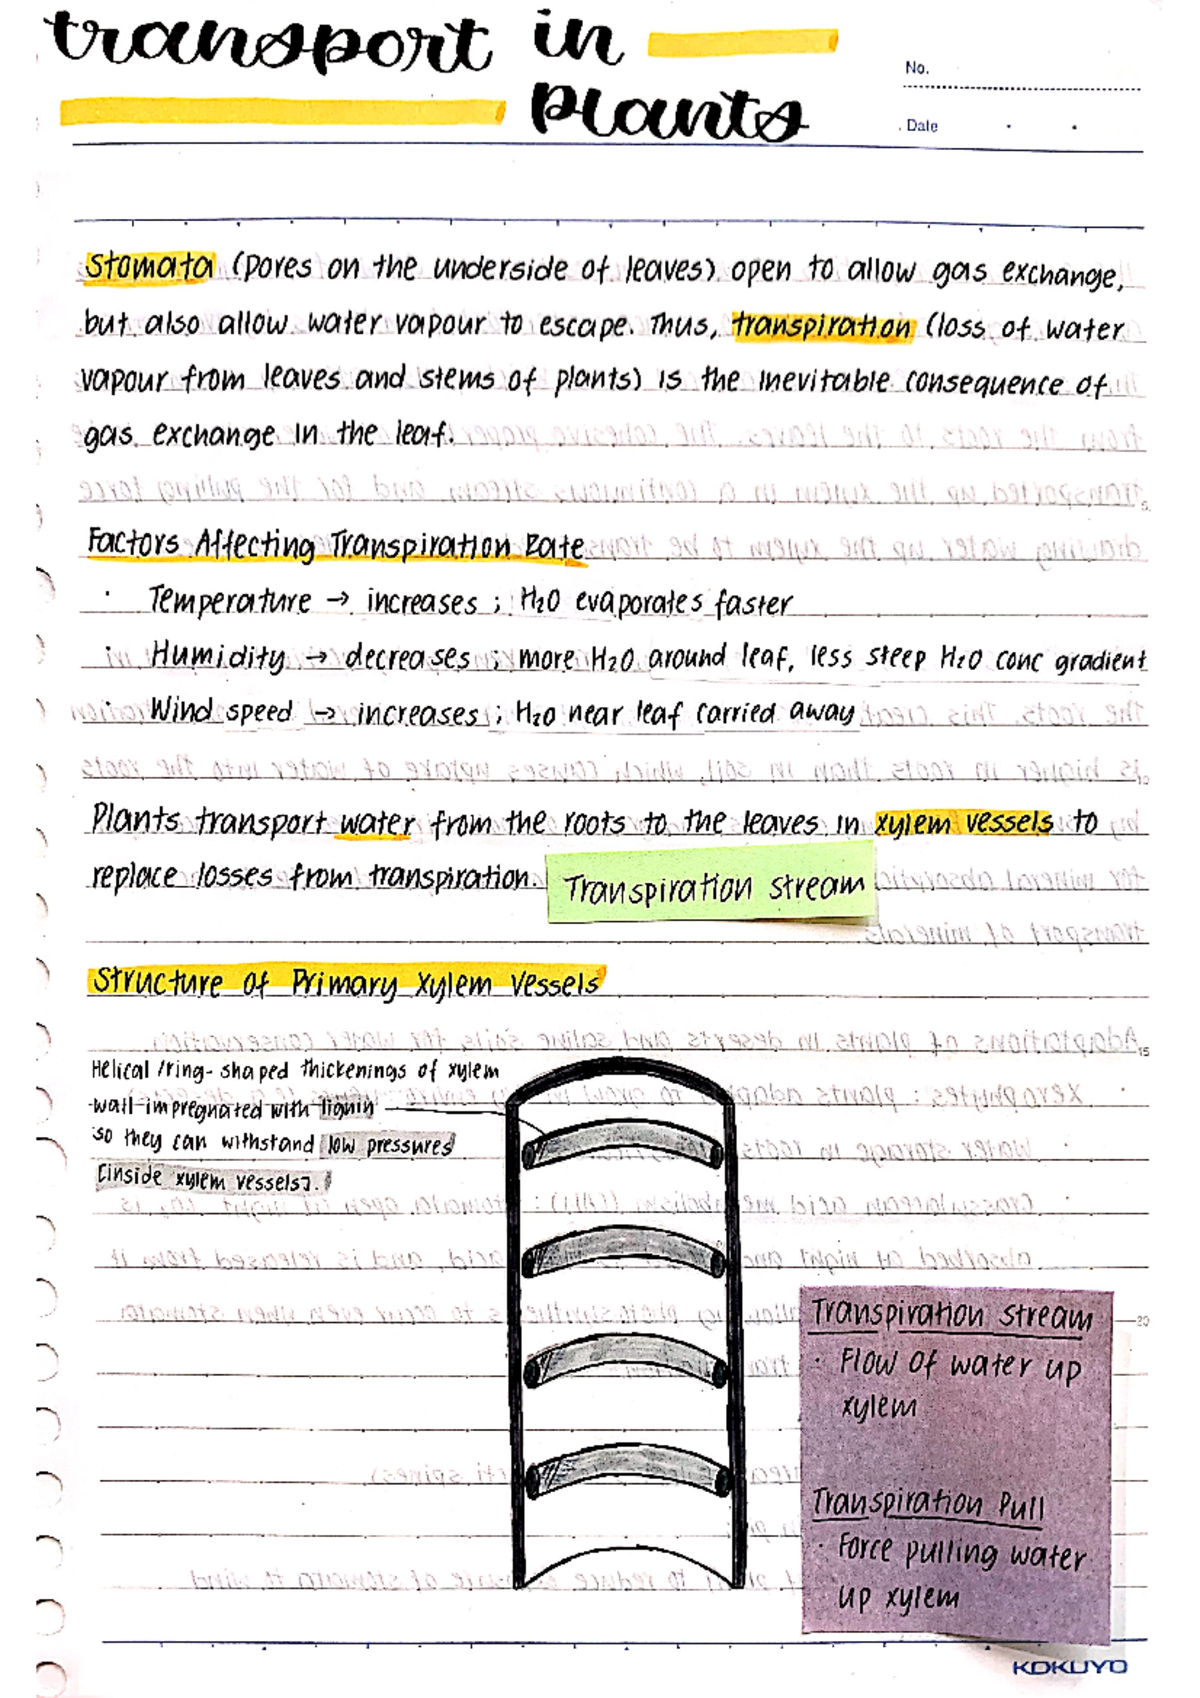 transport in
plants
No.
Date
Stomata (pores on the underside of leaves) open to allow gas exchange,
but also allow water vapour to escape. Thus, transpiration (loss of water
vapour from leaves and stems of plants) is the inevitable consequence of
gas exchange in the leaf.
Factors Affecting Transpiration Rate
· Temperature → increases ; H₂O evaporates faster
· Humidity → decreases ; more H₂O around leaf, less steep H₂O conc gradient
· Wind speed → increases ; H₂O near leaf carried away
Plants transport water from the roots to the leaves in xylem vessels to
replace losses from transpiration.
Transpiration stream
Structure of Primary Xylem Vessels
Helical/ring-shaped thickenings of xylem
wall impregnated with lignin
so they can withstand low pressures
[inside xylem vessels].
Transpiration Stream
· Flow of water up
xylem
Transpiration Pull
· Force pulling water
up xylem
KOKUYO